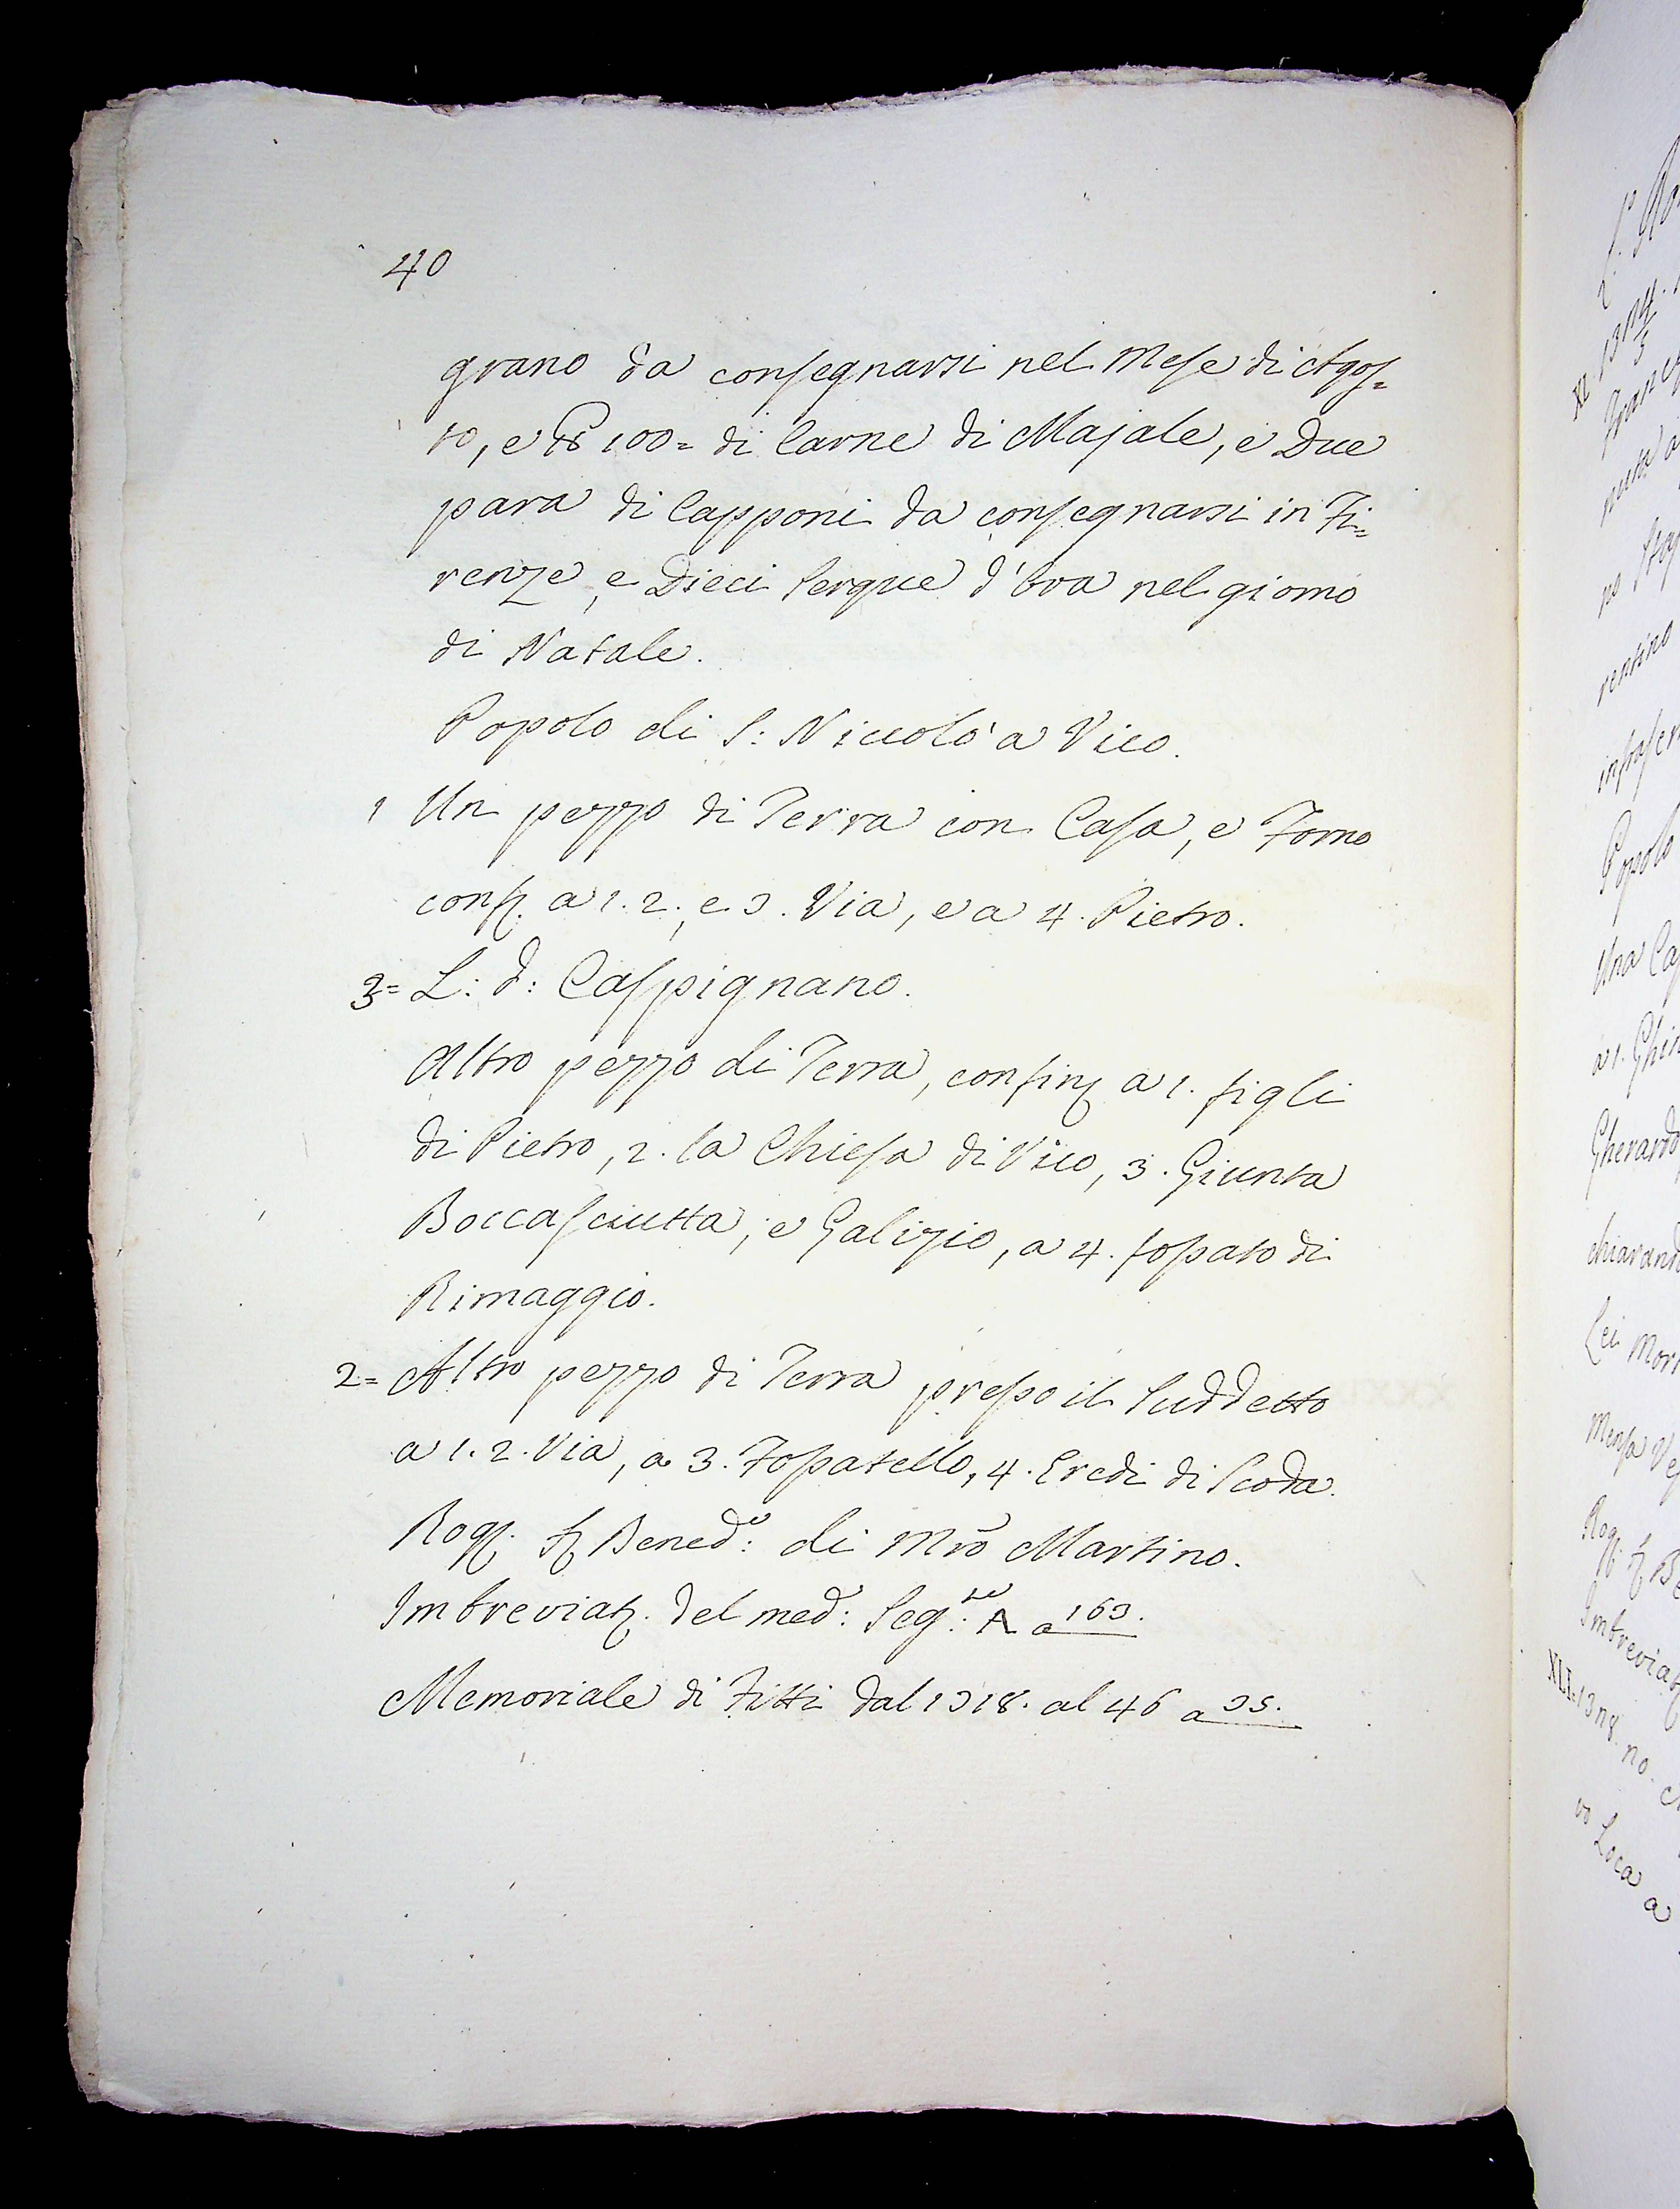 40
grano da consegnarsi nel Mese di Agos=
to, e ℔ 100= di Carne di Majale, e Due
para di Capponi da consegnarsi in Fi=
renze, e Dieci Serque d'Ova nel giorno
di Natale.
Popolo di S: Niccolò a Vico.
1 Un pezzo di Terra con Casa, e Forno
conf. a 1. 2., e 3. Via, e a 4. Pietro.
3= L: d: Caspignano.
Altro pezzo di Terra, confin. a 1. figli
di Pietro, 2. la Chiesa di Vico, 3. Giunta
Boccasciutta, e Galizio, a 4. fossato di
Rimaggio.
2= Altro pezzo di Terra presso il Suddetto
a 1. 2. Via, a 3. Fossatello, 4. Eredi di Scoda.
Rog. S. Bened.º: di Mrõ Martino.
Imbreviat. del med: Seg.to: A a 163.
Memoriale di Fitti dal 1318. al 46 a 35.
Popolo
Una
Gherardo
Lei
Mensa
Rog.
Imbreviat.
XLI. 13n8. no.
vo Loca a